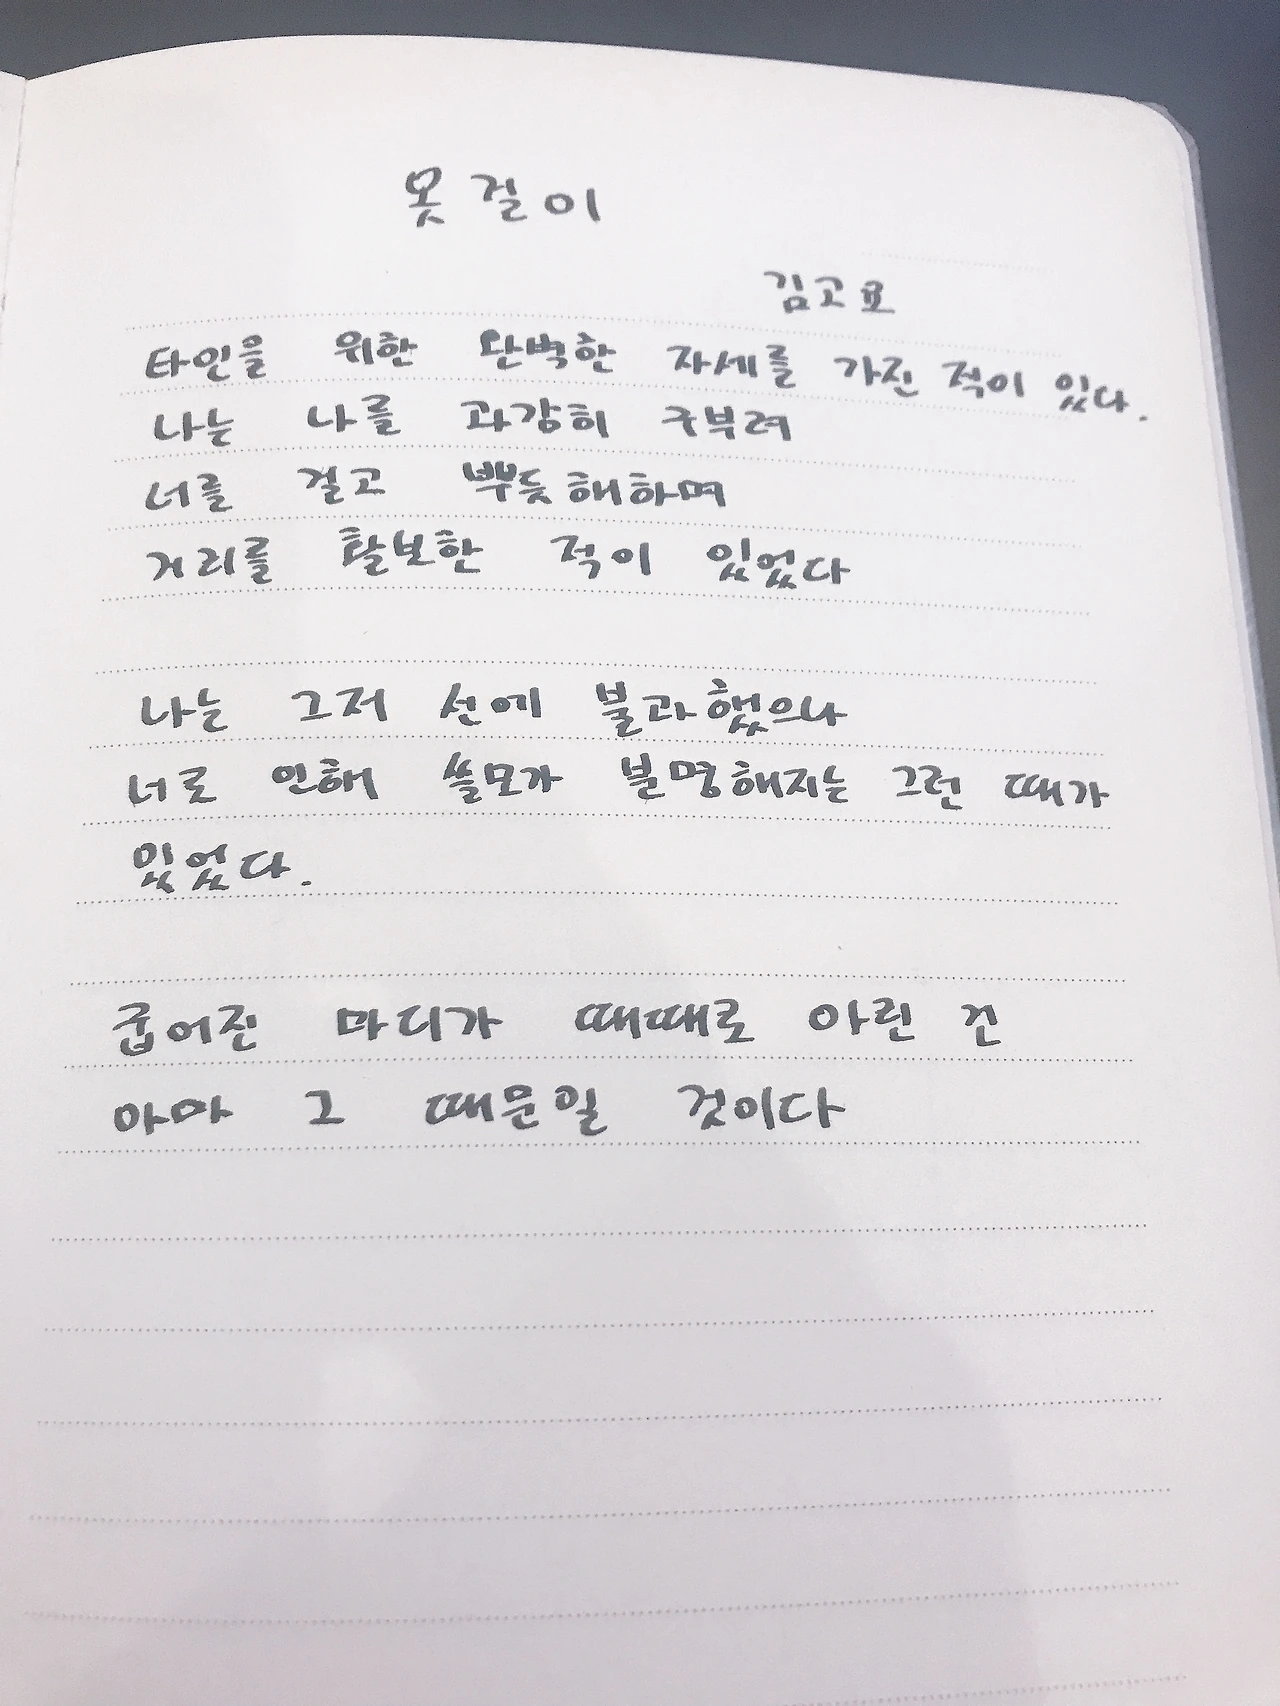 옷걸이
김고요
타인을 위한 완벽한 자세를 가진 적이 있다.
나는 나를 과감히 구부려
너를 걸고 뿌듯해하며
거리를 활보한 적이 있었다
나는 그저 선에 불과했으나
너로 인해 쓸모가 분명해지는 그런 때가
있었다.
굽어진 마디가 때때로 아린 건
아마 그 때문일 것이다